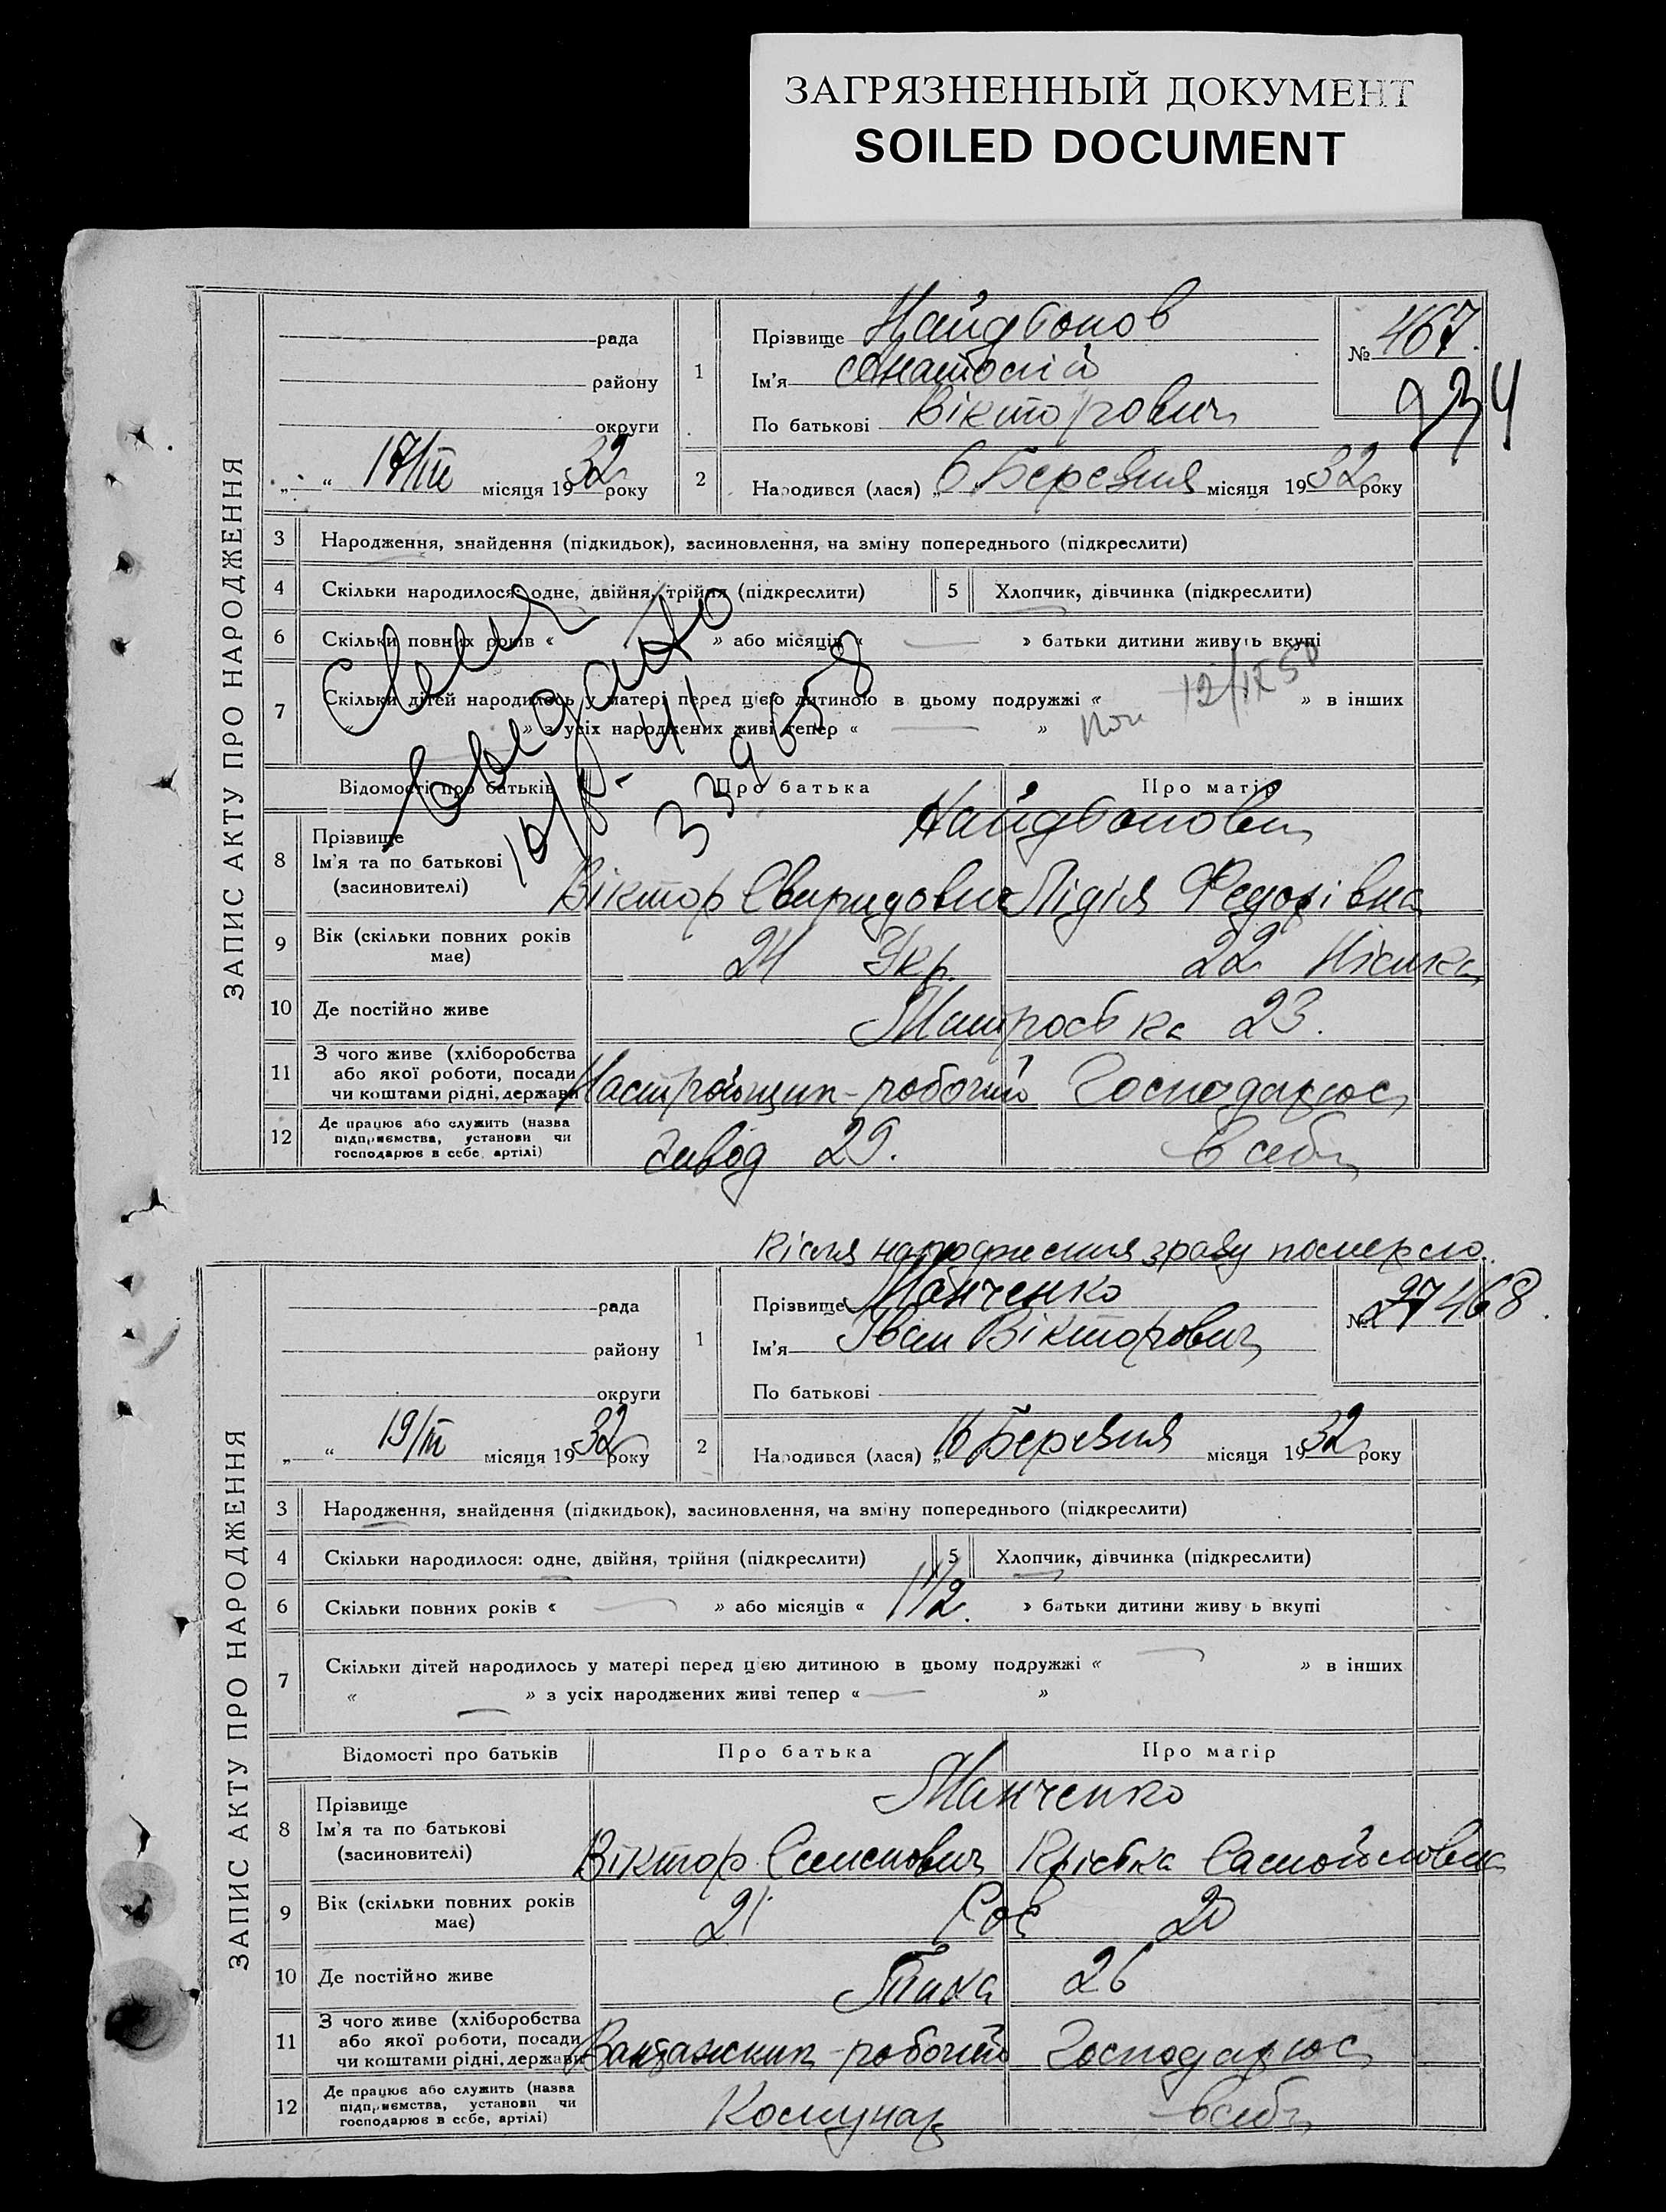 ЗАГРЯЗНЕННЫЙ ДОКУМЕНТ
SOILED DOCUMENT
ЗАПИС АКТУ ПРО НАРОДЖЕННЯ
рада
району
округи
„ “ 17/III місяця 1932 року
1
Прізвище
Ім'я Анатолій
По батькові Вікторович
№ 467.
934
2
Народився (лася) „ 6 Березня місяця 1932 року
3 Народження, знайдення (підкидьок), засиновлення, на зміну попереднього (підкреслити)
4 Скільки народилося: одне, двійня, трійня (підкреслити) 5 Хлопчик, дівчинка (підкреслити)
6 Скільки повних років « » або місяців « — » батьки дитини живуть вкупі
7 Скільки дітей народилось у матері перед цією дитиною в цьому подружжі « » в інших
« » з усіх народжених живі тепер « — »
12/IX 50
Відомості про батьків Про батька Про матір
8 Прізвище
Ім'я та по батькові
(засиновителі)
Віктор Свиридович Лідія Федорівна
9 Вік (скільки повних років має) 24 Укр. 22
10 Де постійно живе 23.
11 З чого живе (хліборобства або якої роботи, посади чи коштами рідні, держави Настройщик-робочий Господарює
12 Де працює або служить (назва підприємства, установи чи господарює в себе, артілі) завод 29. в себе
Після народження зразу померло.
ЗАПИС АКТУ ПРО НАРОДЖЕННЯ
рада
району
округи
„ “ 19/III місяця 1932 року
1
Прізвище Манченко
Ім'я Іван Вікторович
По батькові
№ 468.
2
Народився (лася) „ 16 Березня місяця 1932 року
3 Народження, знайдення (підкидьок), засиновлення, на зміну попереднього (підкреслити)
4 Скільки народилося: одне, двійня, трійня (підкреслити) 5 Хлопчик, дівчинка (підкреслити)
6 Скільки повних років « — » або місяців « 1 1/2. » батьки дитини живу ь вкупі
7 Скільки дітей народилось у матері перед цією дитиною в цьому подружжі « — » в інших
« — » з усіх народжених живі тепер « — »
Відомості про батьків Про батька Про матір
8 Прізвище
Ім'я та по батькові
(засиновителі)
Манченко
Віктор Семенович
9 Вік (скільки повних років має) 21 20
10 Де постійно живе Тиха 26
11 З чого живе (хліборобства або якої роботи, посади чи коштами рідні, держави Вантажник-робочий Господарює
12 Де працює або служить (назва підприємства, установи чи господарює в себе, артілі) Комунар в себе